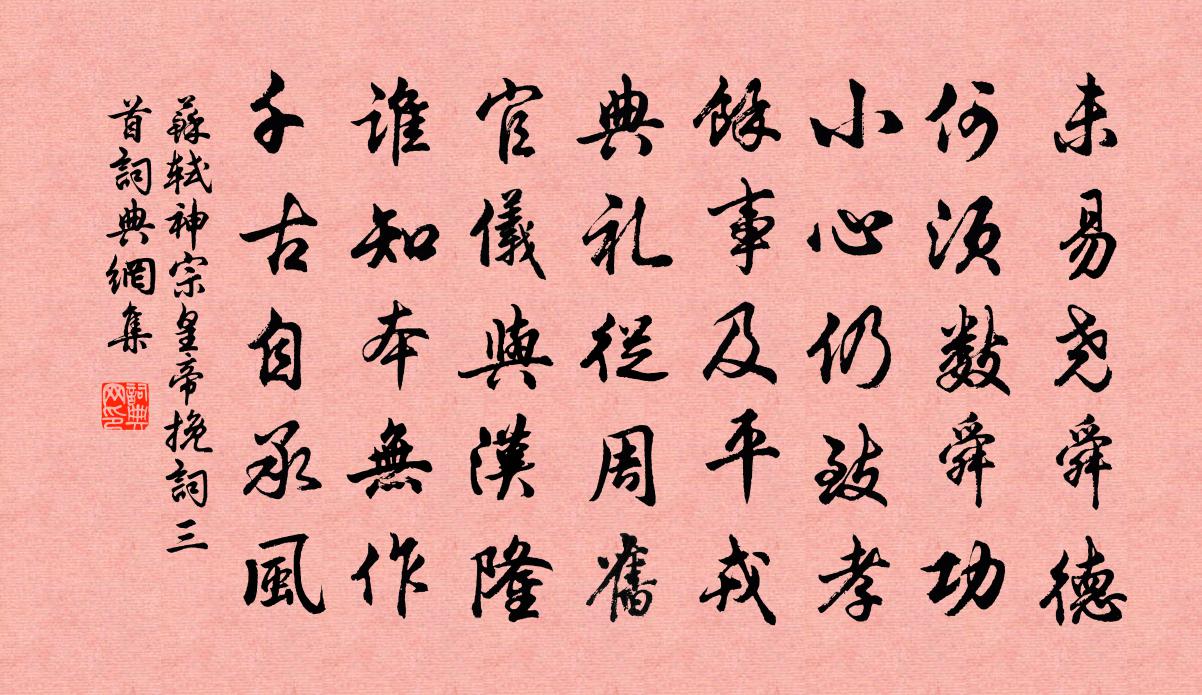 未易尧舜德
何须數舜功
小心仍致孝
餘事及平戎
典礼從周舊
官儀與漢隆
誰知本無作
千古自承風
蘇軾神宗皇帝挽詞三
首詞典網集
詞典
网印